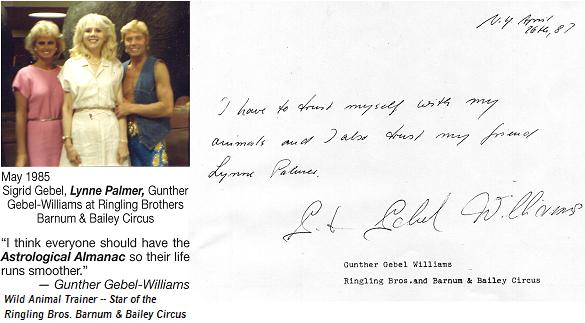 May 1985
Sigrid Gebel, Lynne Palmer, Gunther
Gebel-Williams at Ringling Brothers
Barnum & Bailey Circus
“I think everyone should have the
Astrological Almanac so their life
runs smoother.”
— Gunther Gebel-Williams
Wild Animal Trainer -- Star of the
Ringling Bros. Barnum & Bailey Circus
N.Y. April
26th, 87
I have to trust myself with my
animals and I also trust my friend
Lynne Palmer.
G. Gebel Williams
Gunther Gebel Williams
Ringling Bros.and Barnum & Bailey Circus